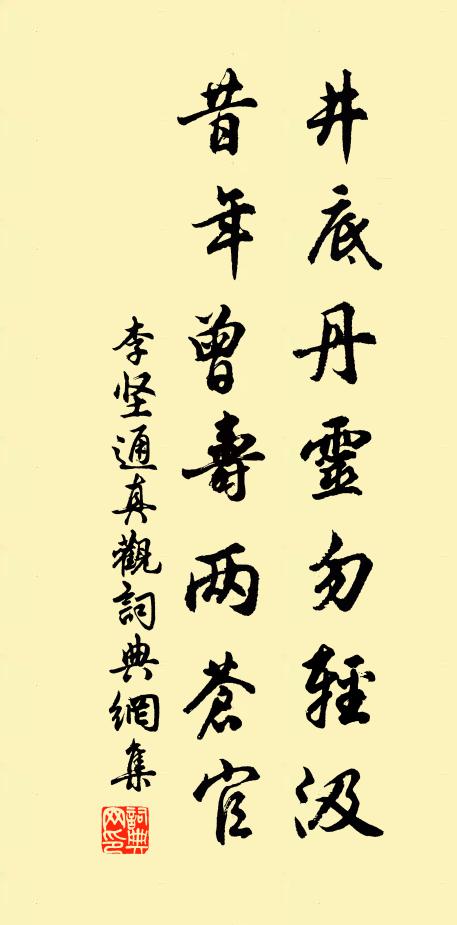 井底丹靈勿輕汲
昔年曾壽两蒼官
李坚通真觀詞典網集
詞典网印